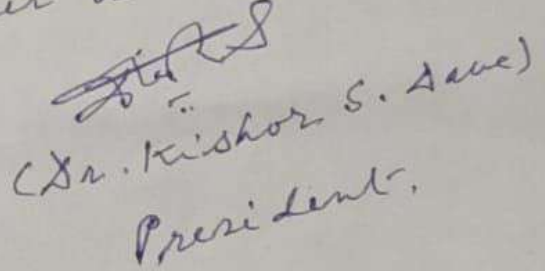 (Dr. Kishor S. Dave)
President.